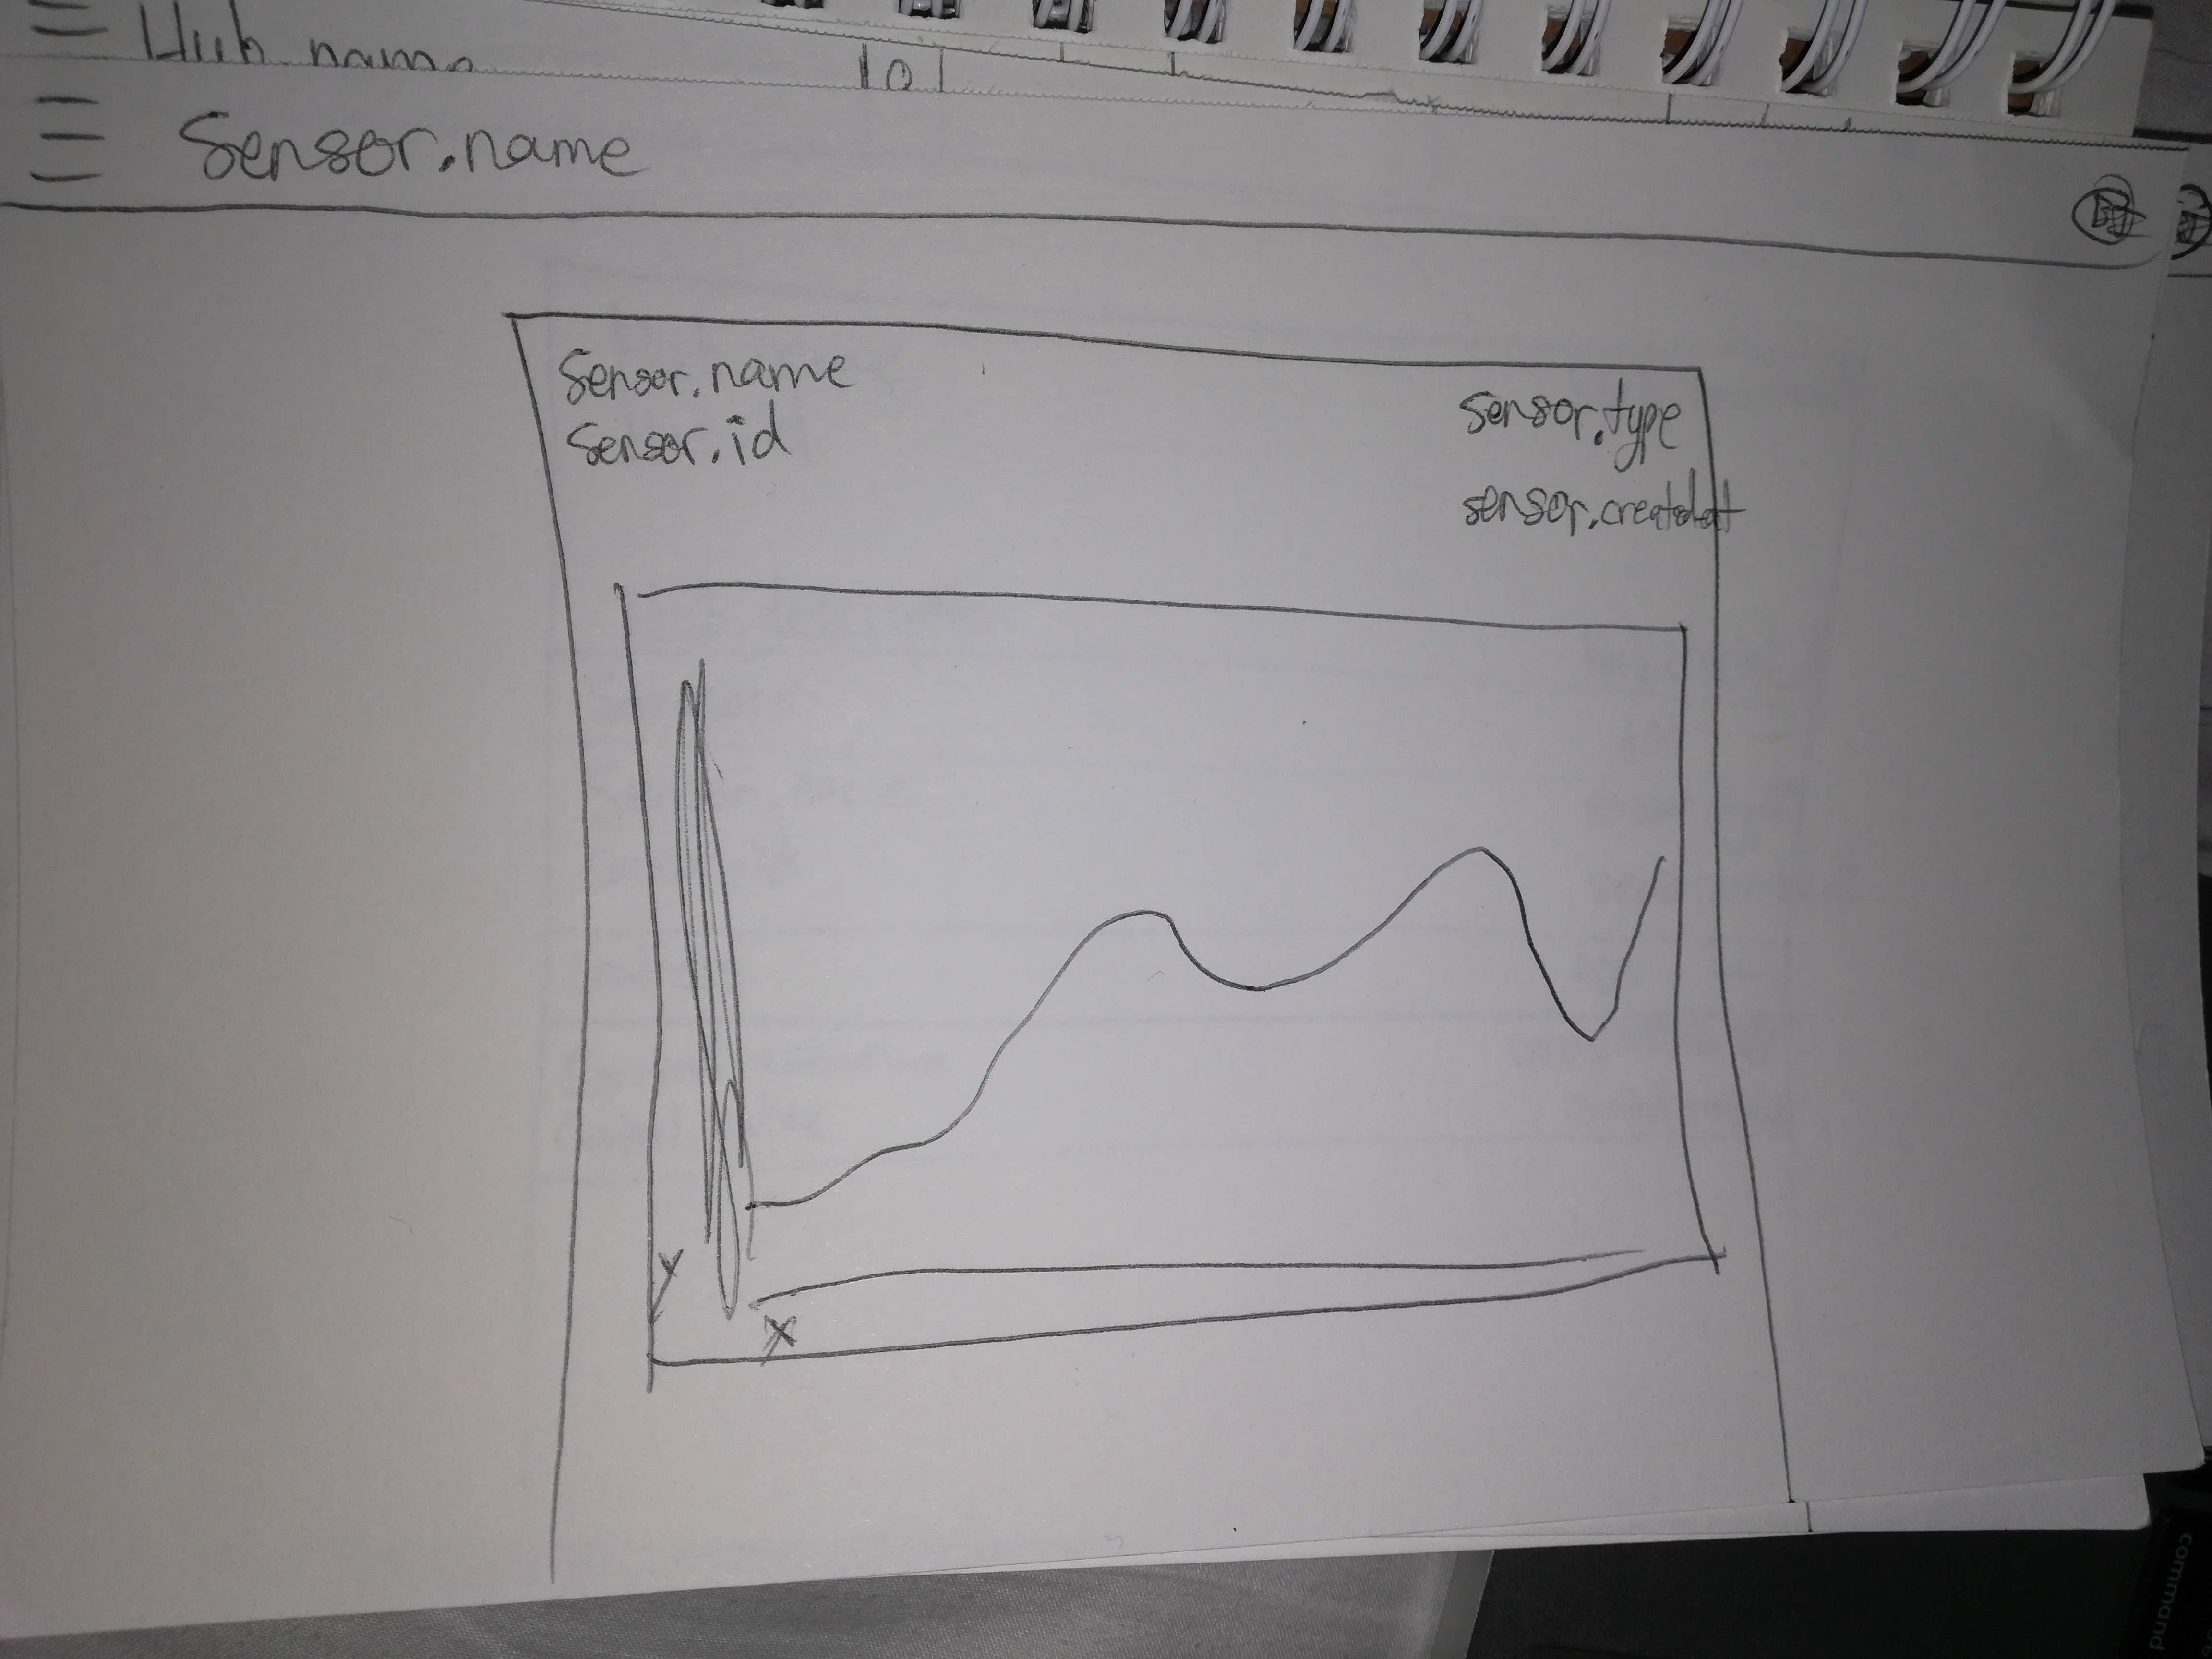 Hub name
Sensor.name
Sensor.name
Sensor.id
Sensor.type
sensor.createdat
Y
X
command